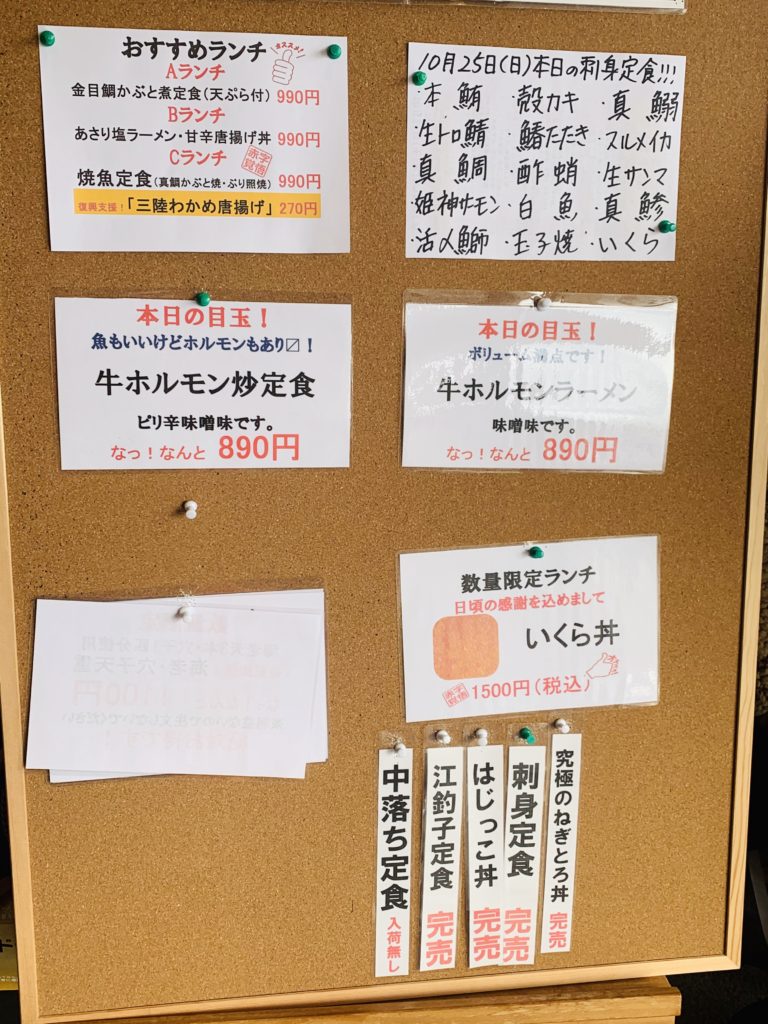 おすすめランチ
オススメ!
Aランチ
金目鯛かぶと煮定食(天ぷら付) 990円
Bランチ
あさり塩ラーメン・甘辛唐揚げ丼 990円
Cランチ
赤字覚悟
焼魚定食(真鯛かぶと焼・ぶり照焼) 990円
復興支援!「三陸わかめ唐揚げ」270円
10月25日(日)本日の刺身定食!!!
・本鮪 ・殻カキ ・真鰯
・生トロ鯖 ・鰆たたき ・スルメイカ
・真鯛 ・酢蛸 ・生サンマ
・姫神サーモン ・白魚 ・真鯵
・活〆鰤 ・玉子焼 ・いくら
本日の目玉!
魚もいいけどホルモンもあり〼!
牛ホルモン炒定食
ピリ辛味噌味です。
なっ!なんと 890円
本日の目玉!
ボリューム満点です!
牛ホルモンラーメン
味噌味です。
なっ!なんと 890円
数量限定ランチ
日頃の感謝を込めまして
いくら丼
赤字覚悟 1500円(税込)
中落ち定食 入荷無し
江釣子定食 完売
はじっこ丼 完売
刺身定食 完売
究極のねぎとろ丼 完売